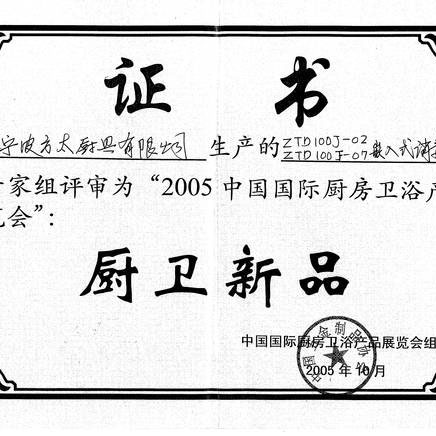 证书
宁波方太厨具有限公司 生产的 ZTD100J-02
ZTD100J-07 嵌入式消
家组评审为“2005中国国际厨房卫浴产
览会”:
厨卫新品
中国国际厨房卫浴产品展览会组
2005年10月